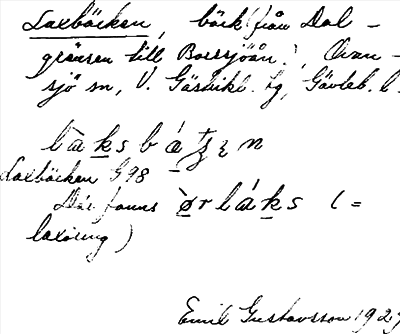 Laxbäcken, bäck (från Dal-
gränsen till Borrsjöån), Ovan-
sjö sn, V. Gästrikl. tg, Gävleb. l.
Laxbäcken G98
Där fanns ørláks (=
laxöring)
Emil Gustavsson 192